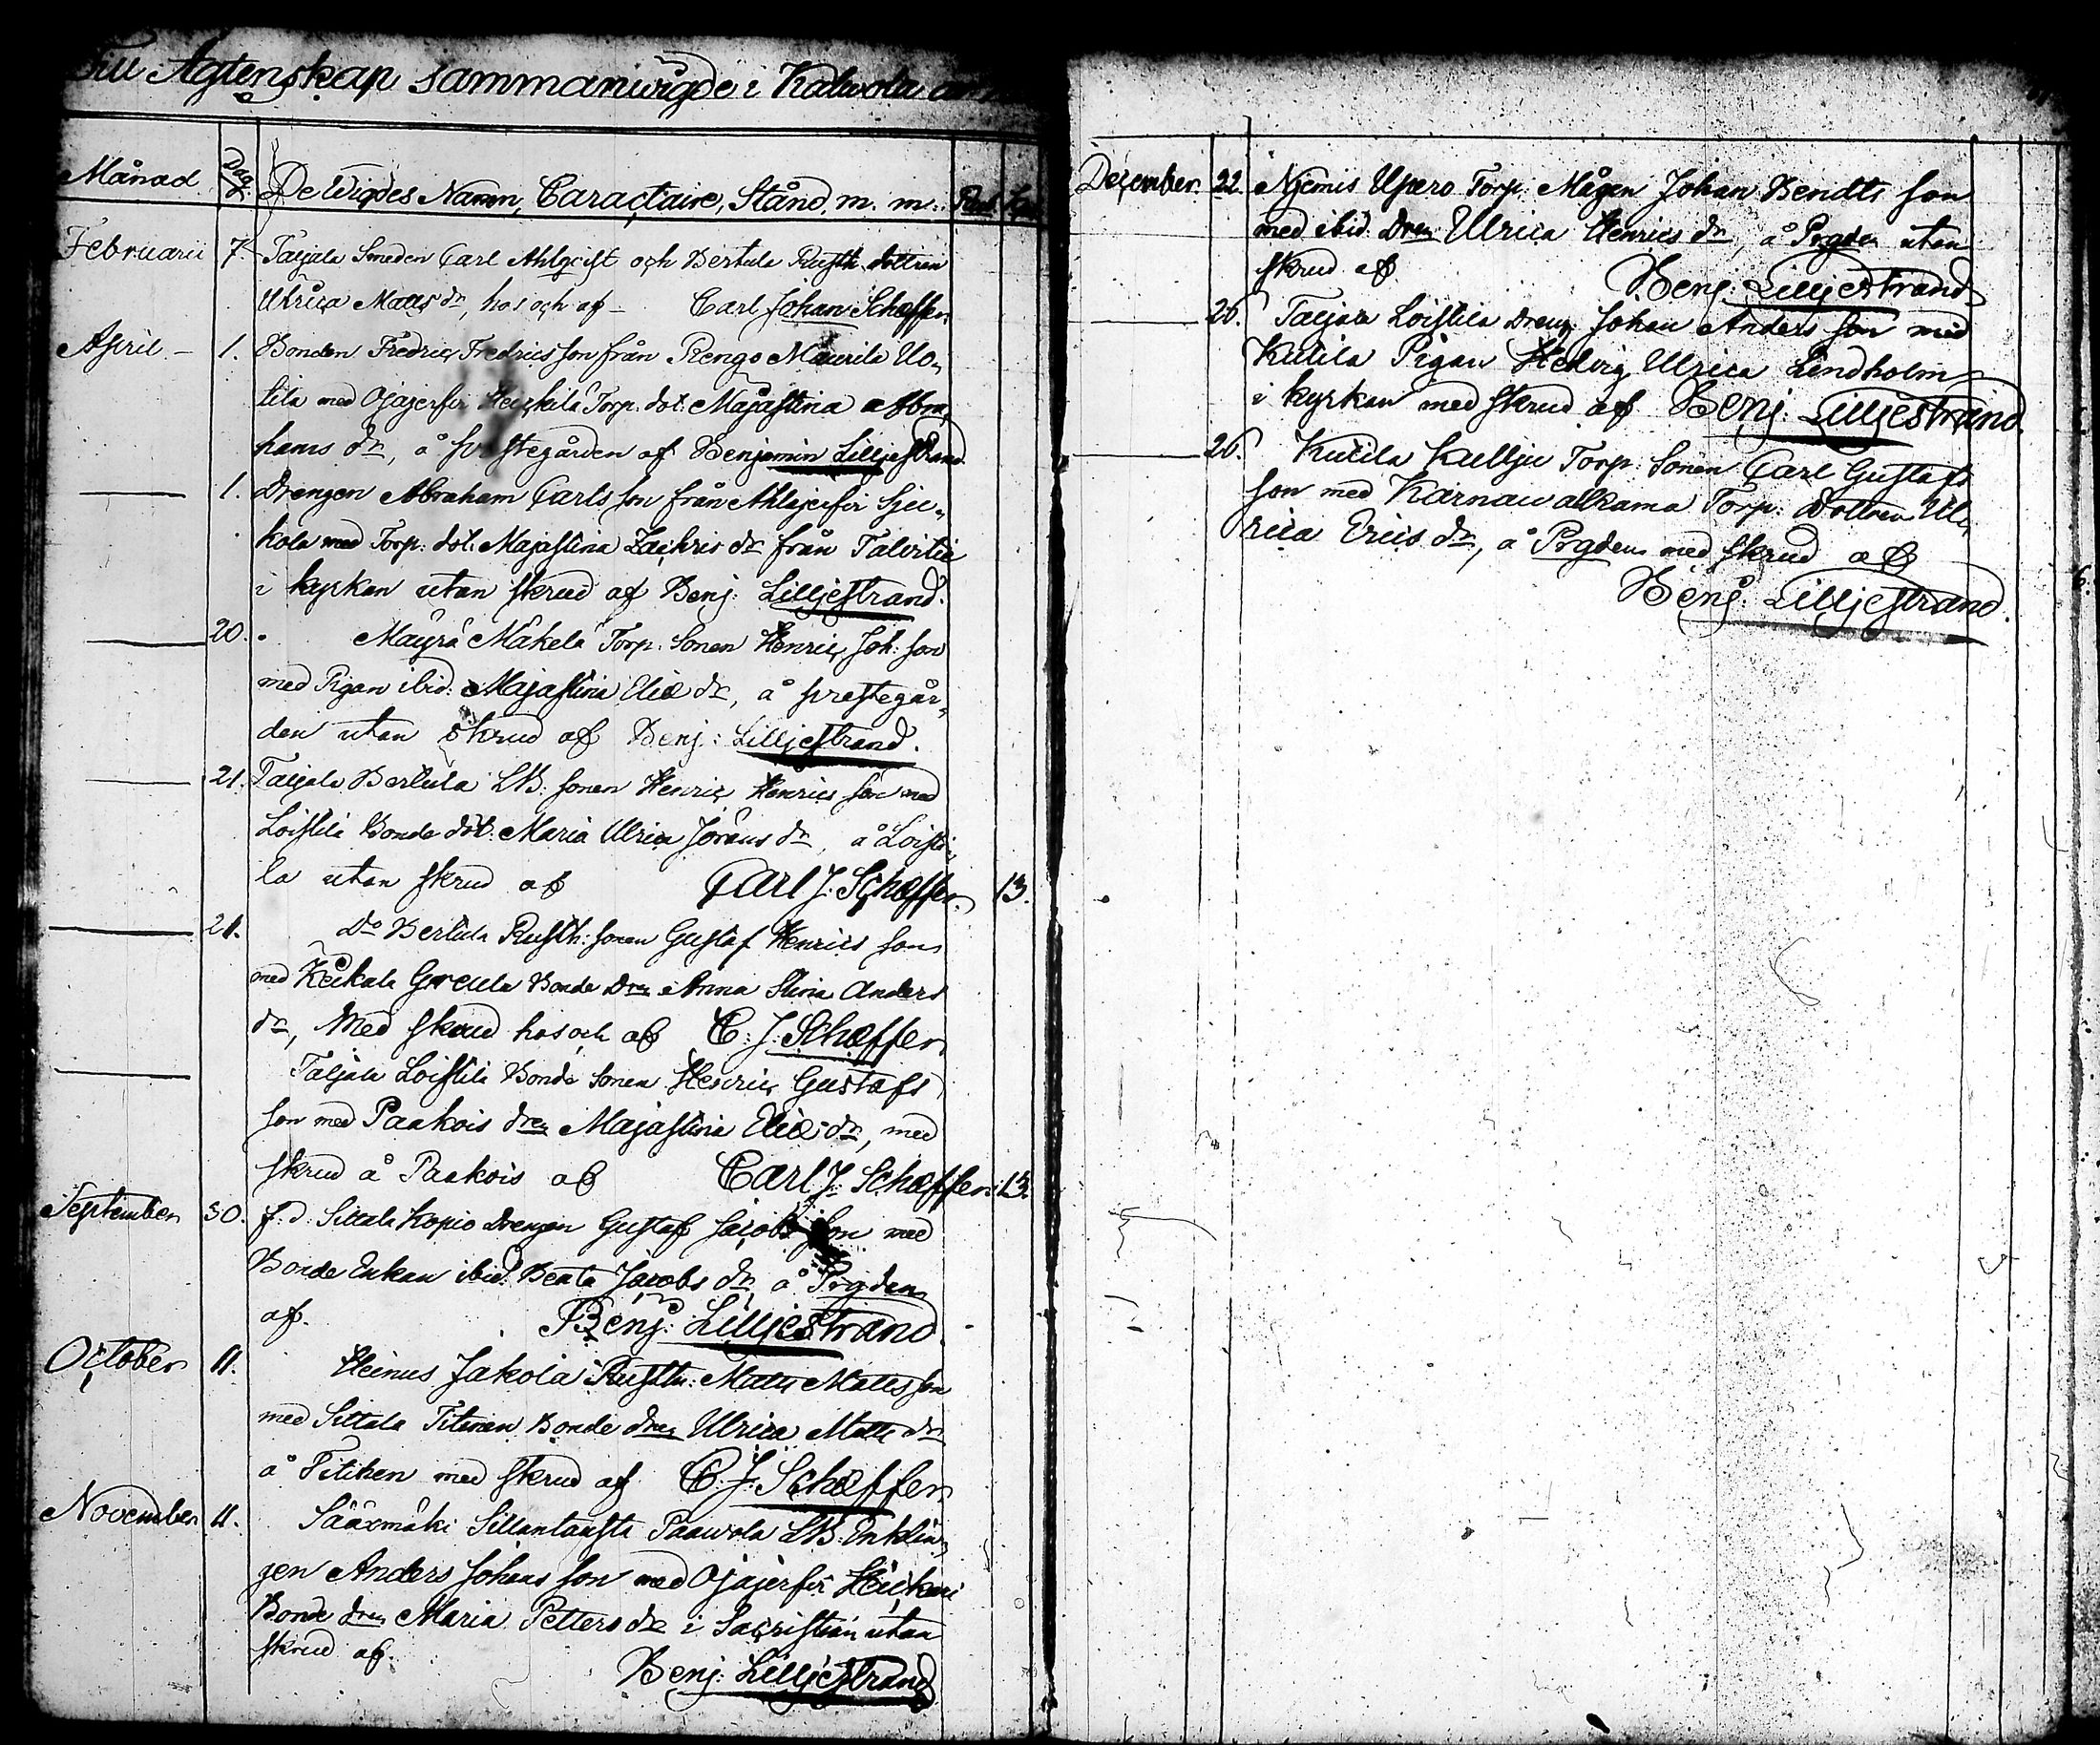 Till Ägtenskap sammanwigde i Kalwola
Månad Dag De Wigdes Namn, Caractaire, Stånd. m. m. Rub. Kop.
Februarii 7. Taljala Smeden Carl Ahlqvist och Bertula Rusth. dottren
Ulrica Matts dr, hos och af – Carl Johan Schæffer
April – 1. Bonden Fredric Fredrics son från Rengo Maurila Uo„
tila med Ojajerfvi Heickilä Torp. dot: Majastina Abra„
hams dr, å prestegården af Benjamin Lilljestrand
1. Drengen Abraham Carls son från Ahlajerfvi Sju„
kola med Torp. dot: Majastina Zachris dr från Talvitie
i kyrkan utan skrud af Benj: Lilljestrand.
20. Mäyrä Mäkelä Torp. Sonen Henric Joh: son
med Pigan ibid: Majastina Eliæ dr, å prestegår„
den utan skrud af Benj: Lilljestrand.
21. Taljala Bertula LB: sonen Henric Henrics son med
Loistila Bonde dot: Maria Ulrica Jörans dr, å Loisti„
la utan skrud af Carl J: Schæffer. 13.
21. Do Bertula Rusth: sonen Gustaf Henrics son
med Keikala Greula Bonde Dren Anna Stina Anders
dr, Med skrud hos och af C: J: Schæffer
Taljala Loistila Bonde sonen Henric Gustafs
son med Paakois dren Majastina Eliæ dr, med
skrud å Paakois af Carl J: Schæffer. 13.
September 30. f: d: Sittala Kopio Drengen Gustaf Jacobs son med
Bonde Enkan ibid: Beata Jacobs dr å Prgden
af. Benj: Lilljestrand.
October 11. Heinus Jakola Rusth: Matts Matts son
med Sittala Titinen Bonde dren Ulrica Matts dr
å Titinen med skrud af C. J: Schæffer
November 11. Sääxmäki Sillantausta Paawola LB: Enklin„
gen Anders Johans son med Ojajerfvi Heickari
Bonde dren Maria Petters dr i Sacristian utan
skrud af.
Benj: Lilljestrand
December. 22. Njemis Upero Torp: Mågen Johan Bendts son
med ibid: Dren Ulrica Henrics dr, å Prgden utan
skrud af Benj: Lilljestrand
26. Taljala Loistila Dreng: Johan Anders son med
Kutila Pigan Hedvig Ulrica Lindholm
i kyrkan med skrud af Benj: Lilljestrand.
26. Kutila Kulllju Torp: Sonen Carl Gustafs
son med Karnaualkama Torp: Dottren Ul„
rica Erics dr, å Prgden med skrud af
Benj: Lilljestrand.
6.